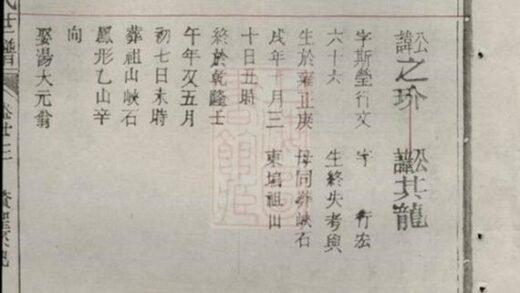 公諱之玠
字斯瑩行文
六十六
生於雍正庚
戌年十月三
十日丑時
終於乾隆壬
午年又五月
初七日未時
葬祖山峽石
鳳形乙山辛
向
娶湯大元翁
公諱其龍
字 行宏
生終失考與
母同葬峽石
東塢祖山
氏世譜